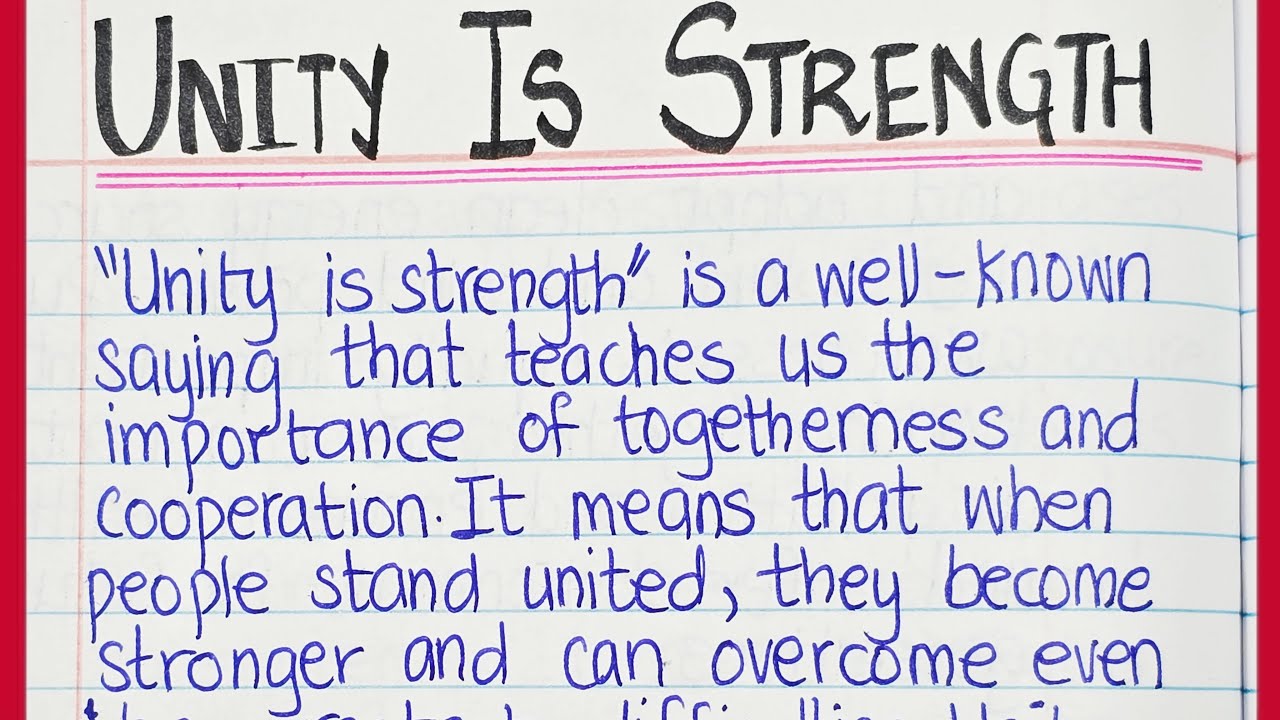 UNITY IS STRENGTH
"Unity is strength" is a well-known
saying that teaches us the
importance of togetherness and
cooperation. It means that when
people stand united, they become
stronger and can overcome even